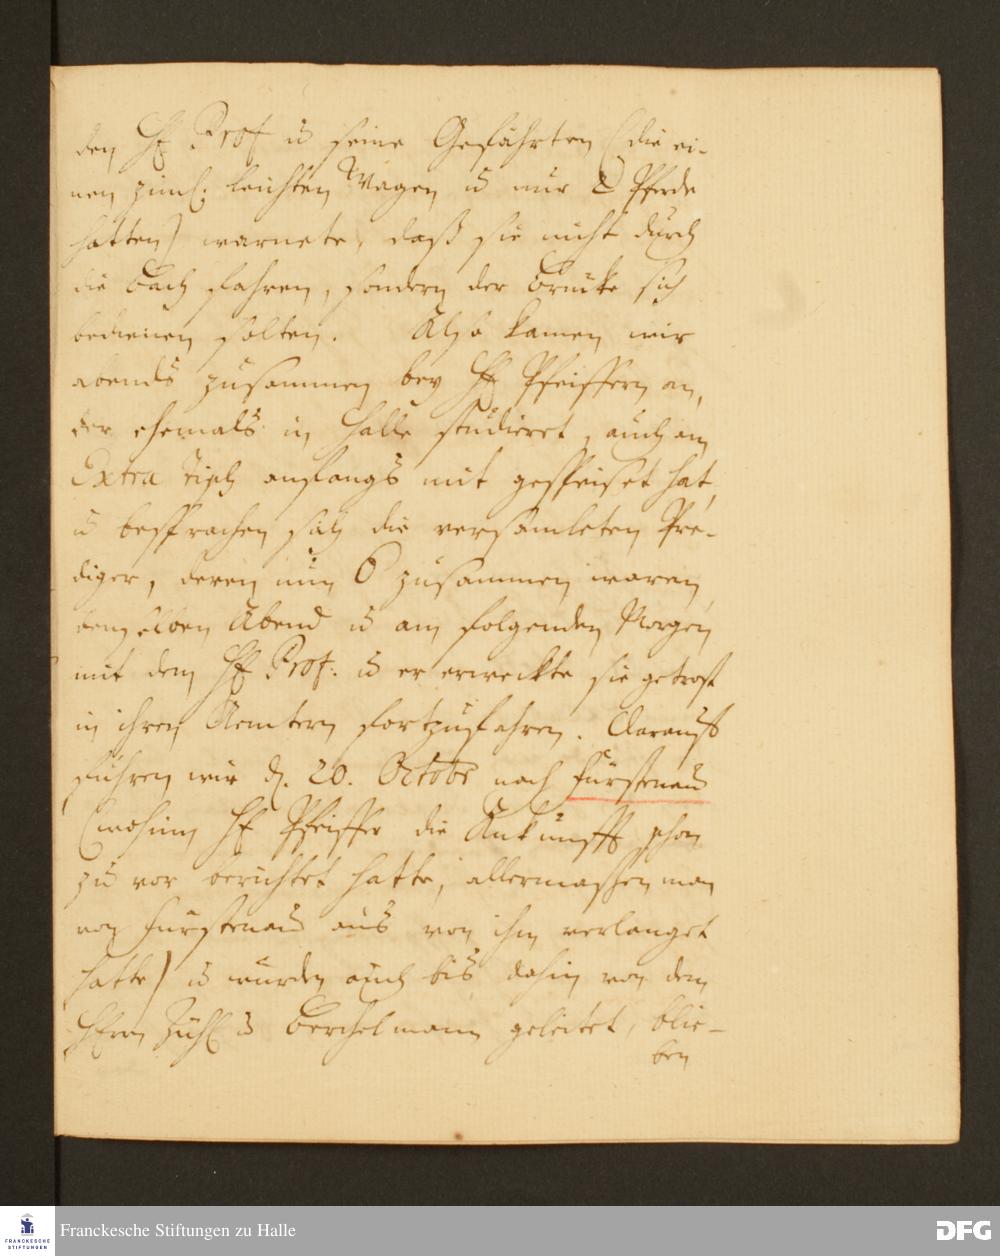 den H. Prof u seine Gefährten (die ei-
nen ziml. leichten Wagen u nur 2 Pferde
hatten) warnete, daß sie nicht durch
die Bach fahren, sondern der Brücke sich
bedienen solten. Also kamen wir
abends zusammen bey H. Pfeiffern an,
der ehemals in Halle studieret, auch am
Extra Tisch anfangs mit gespeiset hat,
u besprachen sich die versamleten Pre-
diger, deren nun 6 zusammen waren,
denselben Abend u am folgenden Morgen
mit dem H. Prof: u er erweckte sie getrost
in ihren Aemtern fortzufahren. Darauff
fuhren wir d. 20. Octobr nach Fürstenau
(wohin H. Pfeiffer die Ankunfft schon
zu vor berichtet hatte, allermassen man
von Fürstenau aus von ihm verlanget
hatte) u wurden auch bis dahin von dem
Herrn Zühl u Berchelmann geleitet, blie-
ben
FRANCKESCHE STIFTUNGEN
Franckesche Stiftungen zu Halle
DFG